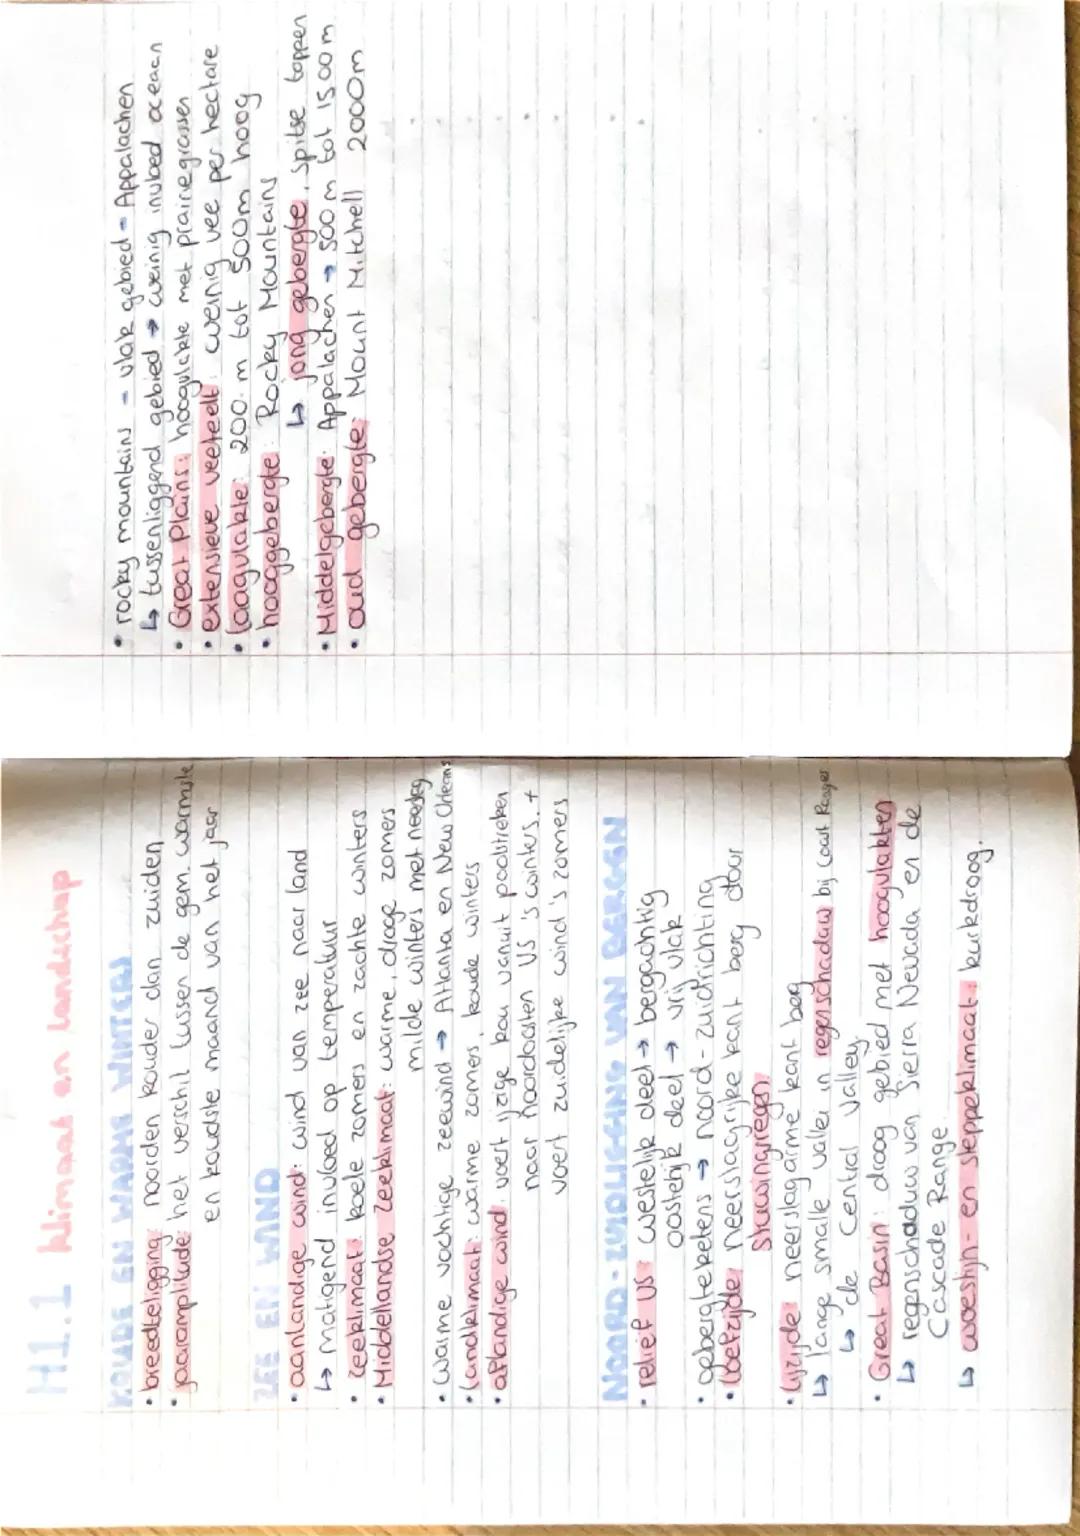 H1.1 klimaat en landschap
KOUDE EN WARME WINTERS
• breedteligging: noorden kouder dan zuiden
• jaaramplitude: het verschil tussen de gem. warmste
en koudste maand van het jaar
ZEE EN WIND
• aanlandige wind: wind van zee naar land
↳ matigend invloed op temperatuur
• zeeklimaat: koele zomers en zachte winters
• Middellandse zeeklimaat: warme, droge zomers
milde winters met neerslag
• warme vochtige zeewind → Atlanta en New Orleans
• landklimaat: warme zomers, koude winters
• aflandige wind: voert ijzige kou vanuit poolstreken
naar noordoosten US 's winters. +
voert zuidelijke wind 's zomers
NOORD-ZUIDLIGGING VAN BERGEN
• reliëf US: westelijk deel → bergachtig
oostelijk deel → vrij vlak
• gebergteketens → noord-zuidrichting
• loefzijde: neerslagrijke kant berg door
stuwingsregen
• lijzijde: neerslagarme kant berg
↳ lange smalle vallei in regenschaduw bij Coast Ranges
↳ de Central Valley
• Great Basin: droog gebied met hoogvlakten
↳ regenschaduw van Sierra Nevada en de
Cascade Range
↳ woestijn- en steppeklimaat: kurkdroog.
• rocky mountain - vlak gebied - Appalachen
↳ tussenliggend gebied → weinig invloed oceaan
• Great Plains: hoogvlakte met prairiegrassen
• extensieve veeteelt: weinig vee per hectare
• laagvlakte: 200 m tot 500m hoog
• hooggebergte: Rocky Mountains
↳ jong gebergte, spitse toppen
• Middelgebergte: Appalachen → 500 m tot 1500 m
• oud gebergte: Mount Mitchell 2000m